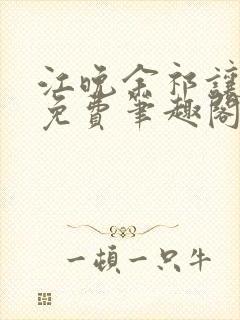 江晚余祁让
免费笔趣阁
一顿一只牛